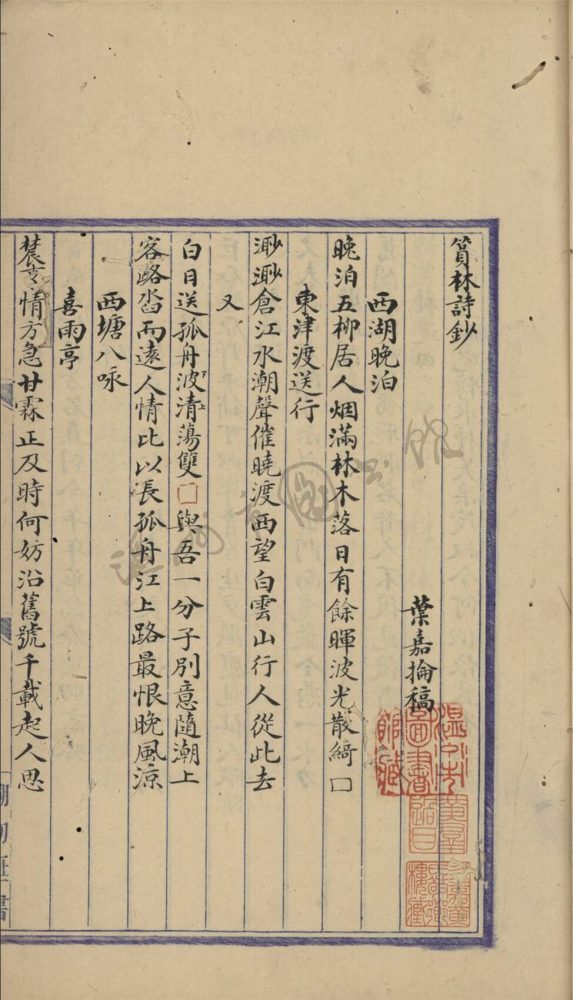 篔林詩鈔
葉嘉掄稿
西湖晚泊
晚泊五柳居人烟滿林木落日有餘暉波光散綺□
東津渡送行
渺渺倉江水潮聲催曉渡西望白雲山行人從此去
又
白日送孤舟波清蕩雙□與吾一分子別意隨潮上
客路沓而遠人情比以長孤舟江上路最恨晚風涼
西塘八咏
喜雨亭
情方急甘霖正及時何妨沿舊號千載起人思
溫州市圖書館藏